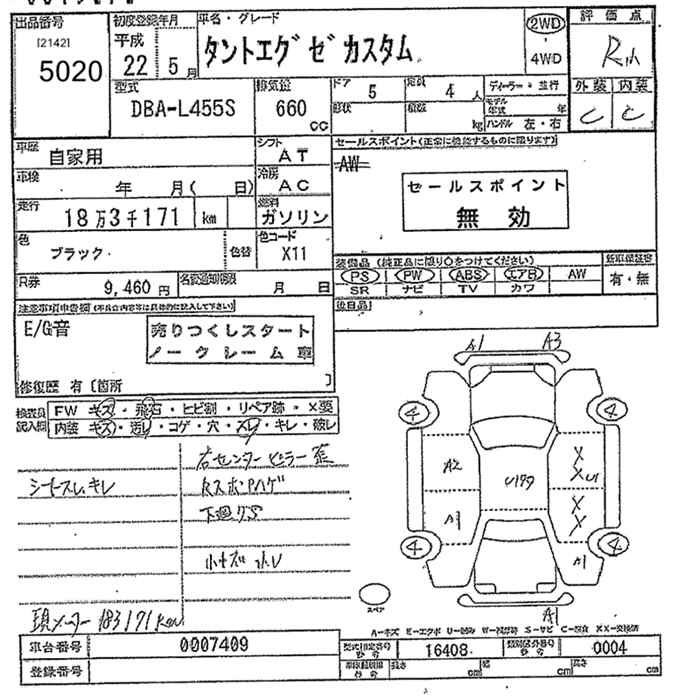 出品番号
[2142]
5020
初度登録年月
平成
22 5月
車名・グレード
タントエグゼカスタム
2WD
4WD
評価点
外装 内装
C C
型式
DBA-L455S
排気量
660
CC
ドア 5
形状
定員 4人
積載 kg
ディーラー・並行
モデル年式 年
ハンドル 左・右
車歴
自家用
シフト
AT
車検
年 月( 日)
冷房
AC
走行
18万3千171 km
燃料
ガソリン
色
ブラック
色替
色コード
X11
R券
9,460円
名変通知期限
月 日
セールスポイント(正常に機能するものに限ります)
AW
セールスポイント
無効
装備品(純正品に限り○をつけてください)
PS PW ABS エアB AW
SR ナビ TV カワ
新車保証書
有・無
後日品
注意事項申告欄
E/G音
売りつくしスタート
ノークレーム車
修復歴 有〔箇所 〕
検査員記入欄
FW キズ・飛石・ヒビ割・リペア跡・X要
内装 キズ・汚レ・コゲ・穴・スレ・キレ・破レ
右センターピラー歪
シートスレ、キレ
下廻りサビ
現メーター 183171km
A1 A3
4 4
A2
A1
4 4
A1
A1
スペア
A－キズ E－エクボ U－凹み W－補修跡 S－サビ C－腐食 XX－交換済
車台番号
0007409
登録番号
型式指定番号
16408
類別区分番号
0004
長さ cm 幅 cm 高さ cm